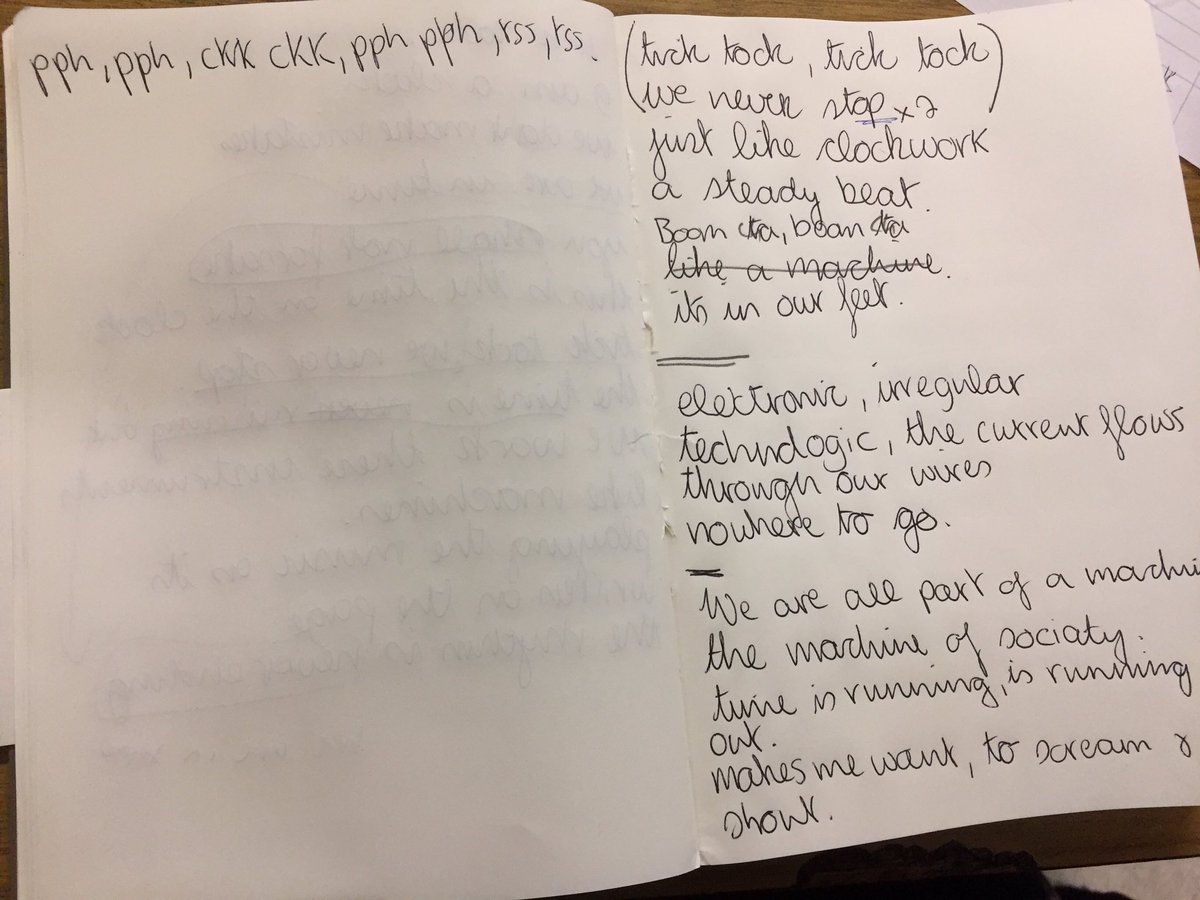 pph, pph, ckk ckk, pph pph, rss, rss.
(tick tock, tick tock)
(we never stop x2)
just like clockwork
a steady beat.
Boom cka, boom cka
like a machine.
its in our feet.
electronic, irregular
technologic, the current flows
through our wires
nowhere to go.
We are all part of a machi
the machine of sociaty.
time is running, is running
out.
makes me want, to scream &
shout.